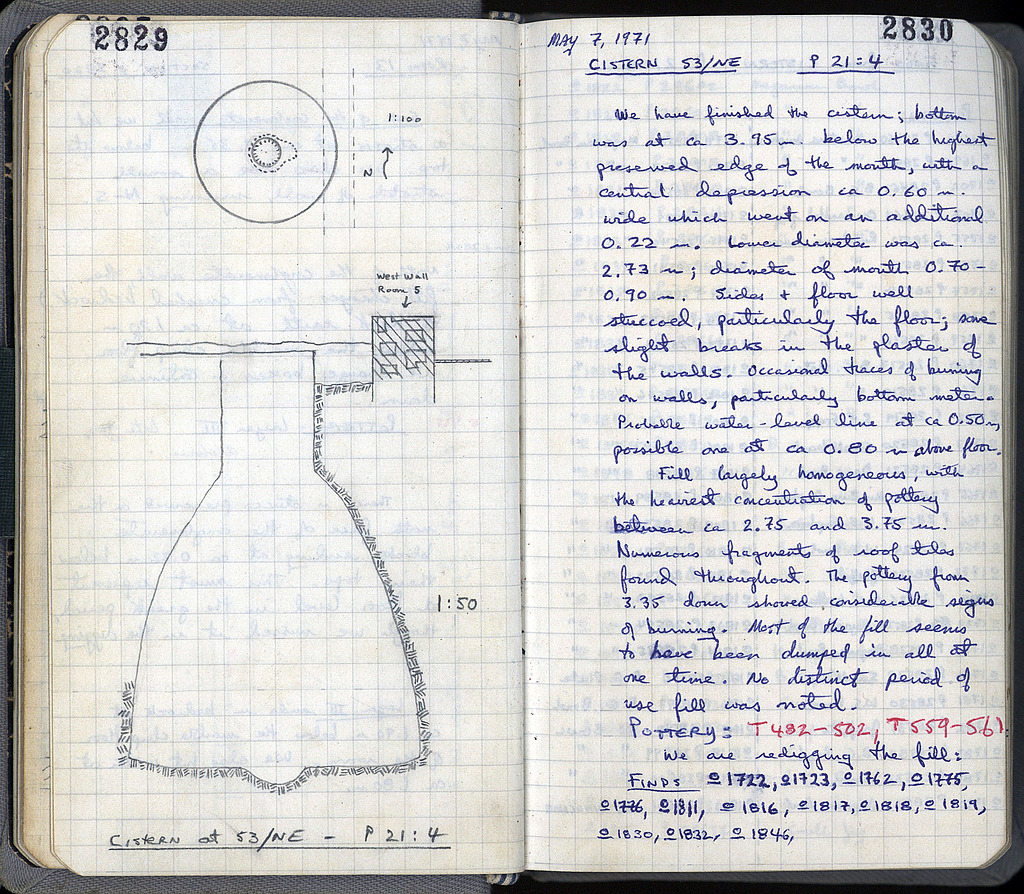 2829
1:100
N
West Wall
Room 5
1:50
Cistern at 53/NE - P 21:4
2830
May 7, 1971
Cistern 53/NE P 21:4
We have finished the cistern; bottom
was at ca 3.95 m. below the highest
preserved edge of the mouth, with a
central depression ca 0.60 m.
wide which went on an additional
0.22 m. Lower diameter was ca.
2.73 m; diameter of mouth 0.70-
0.90 m. Sides & floor well
stuccoed, particularly the floor; some
slight breaks in the plaster of
the walls. Occasional traces of burning
on walls, particularly bottom meter.
Probable water-level line at ca 0.50 m,
possible one at ca 0.80 m above floor.
Fill largely homogeneous, with
the heaviest concentration of pottery
between ca 2.75 and 3.75 m.
Numerous fragments of roof tiles
found throughout. The pottery from
3.35 down showed considerable signs
of burning. Most of the fill seems
to have been dumped in all at
one time. No distinct period of
use fill was noted.
Pottery: T 482-502, T 559-561.
We are redigging the fill:
Finds o 1722, o 1723, o 1762, o 1775,
o 1776, o 1811, o 1816, o 1817, o 1818, o 1819,
o 1830, o 1832, o 1846,